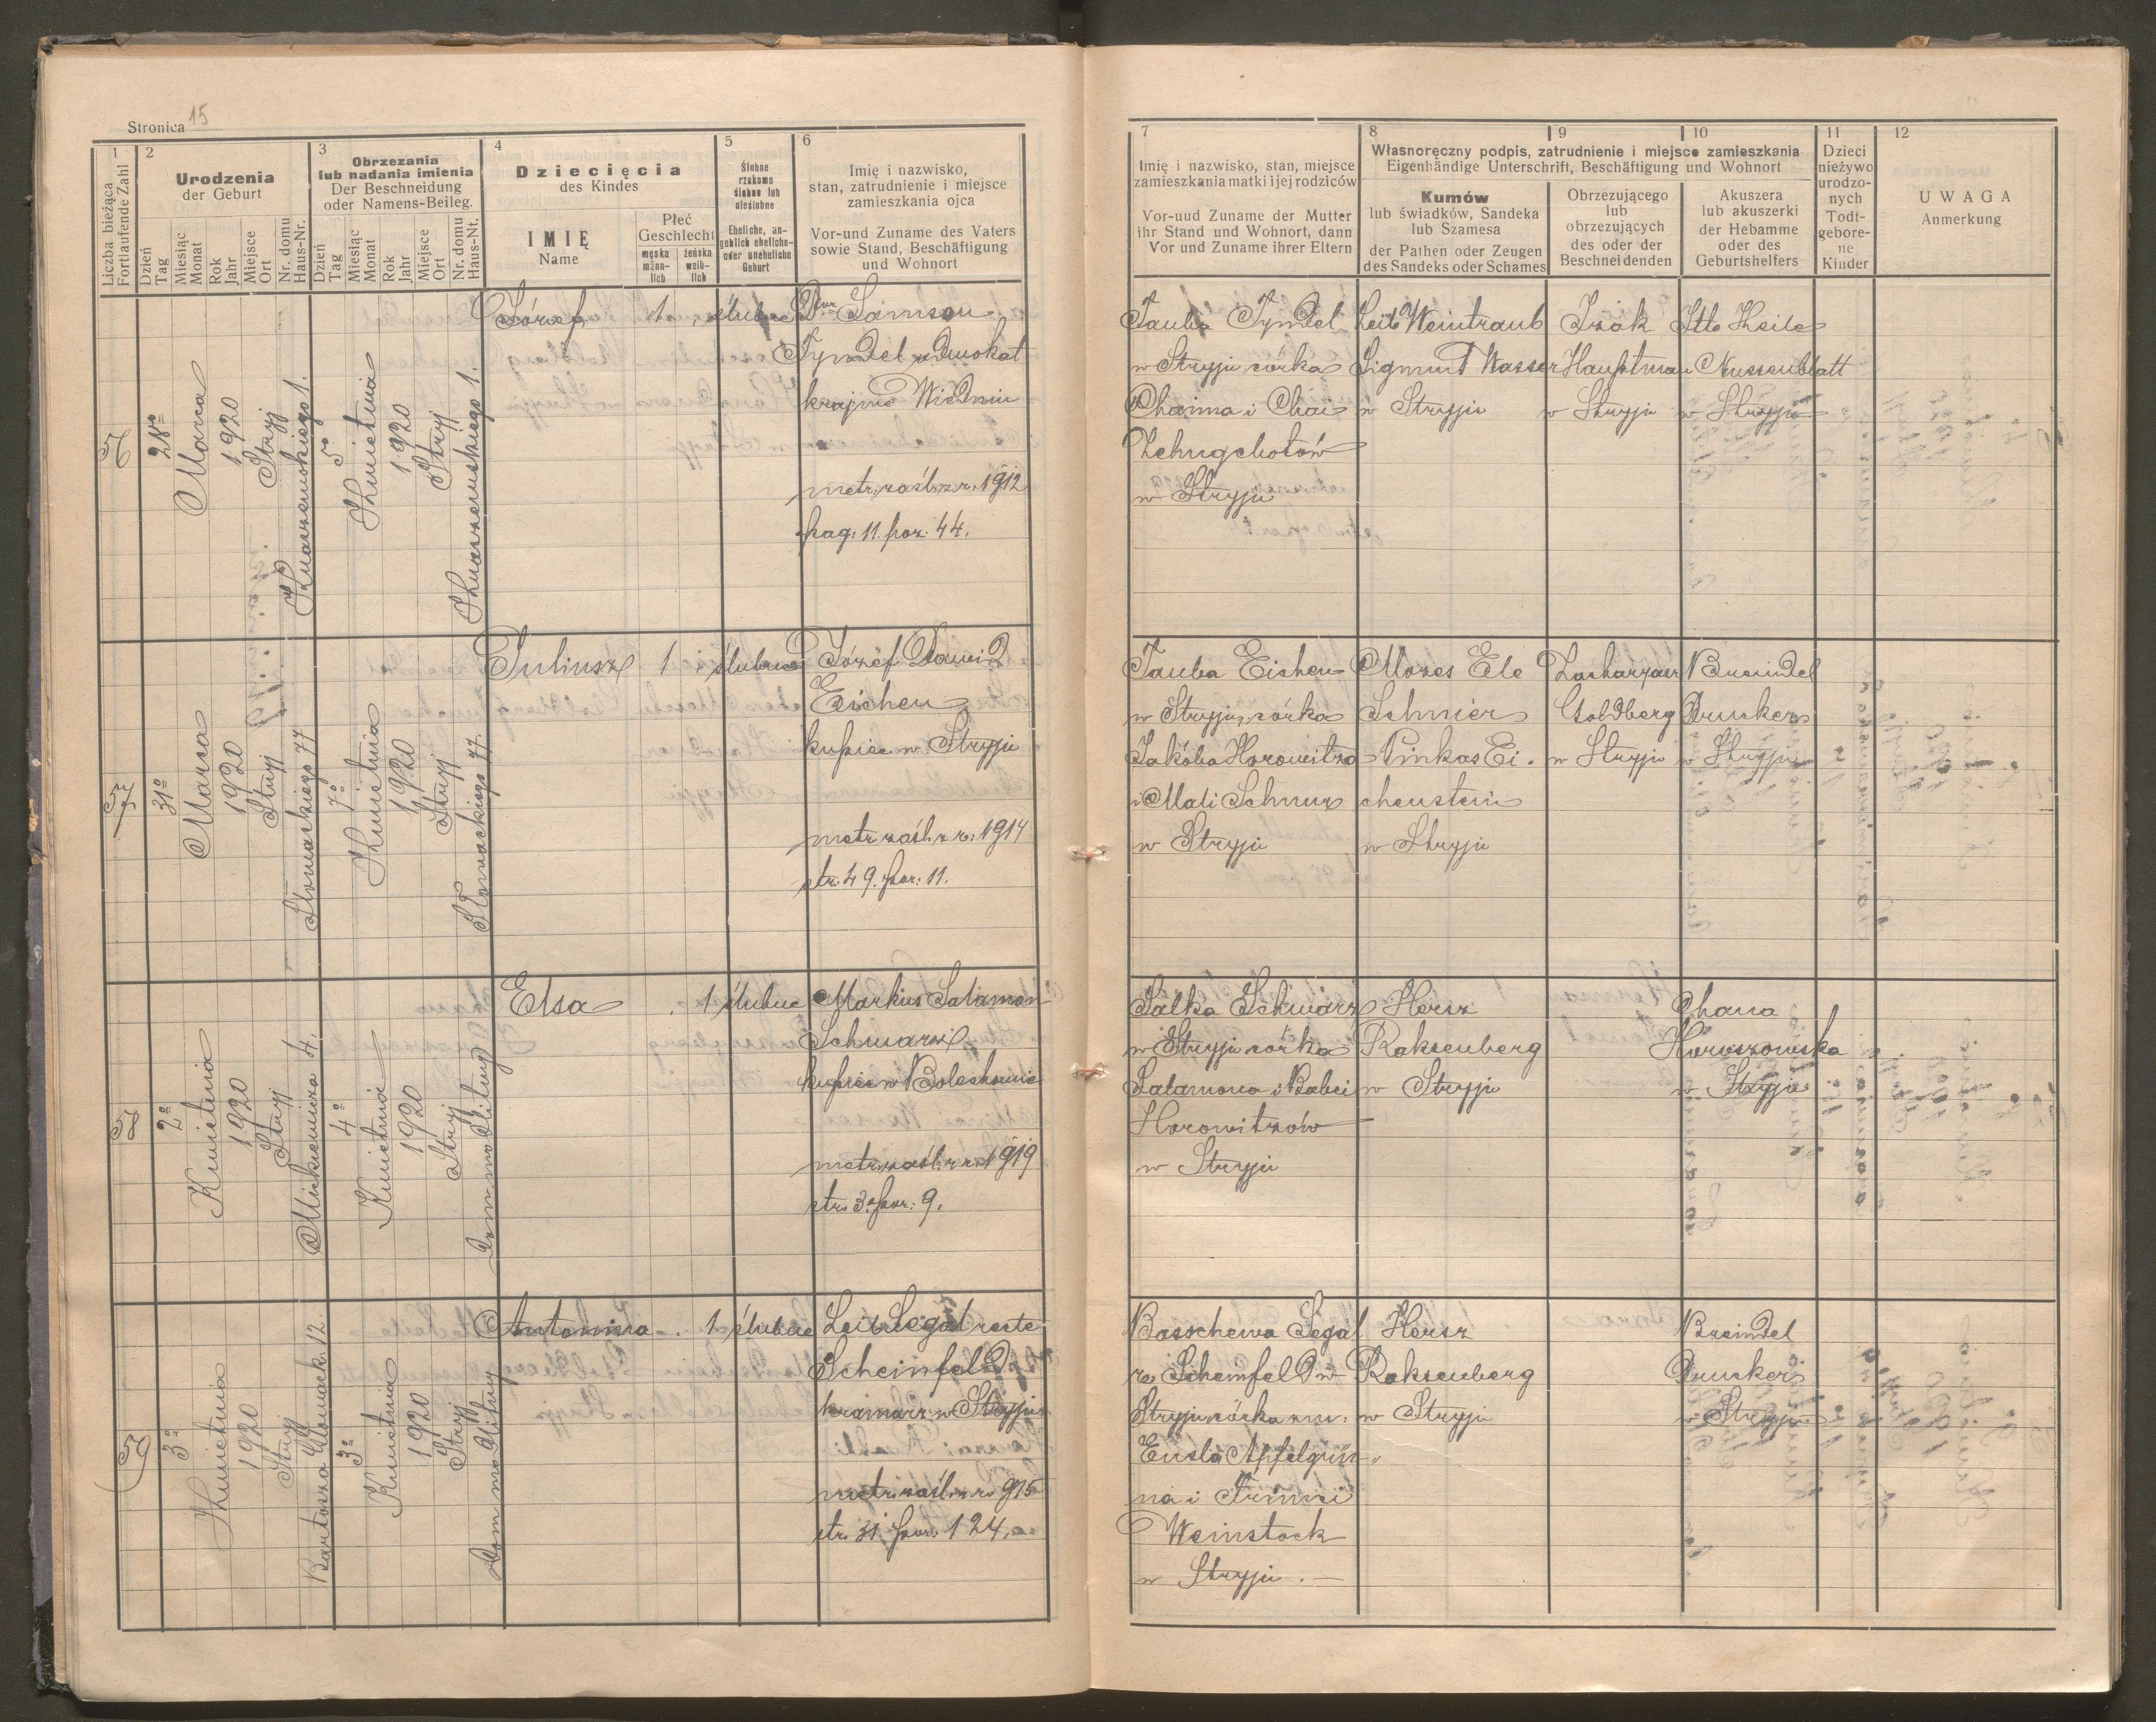 Stronica 15
1
2
3
4
5
6
Liczba bieżąca
Fortlaufende Zahl
Urodzenia
der Geburt
Dzień
Tag
Miesiąc
Monat
Rok
Jahr
Miejsce
Ort
Nr. domu
Haus-Nr.
Obrzezania
lub nadania imienia
Der Beschneidung
oder Namens-Beileg.
Dzień
Tag
Miesiąc
Monat
Rok
Jahr
Miejsce
Ort
Nr. domu
Haus-Nt.
Dziecięcia
des Kindes
IMIĘ
Name
Płeć
Geschlecht
męska
männ-
lich
żeńska
weib-
lich
Ślubne
rzekomo
ślubne lub
nieślubne
Eheliche, an-
geblich eheliche-
oder uneheliche
Geburt
Imię i nazwisko,
stan, zatrudnienie i miejsce
zamieszkania ojca
Vor-und Zuname des Vaters
sowie Stand, Beschäftigung
und Wohnort
56
28º
Marca
1920
Stryj
5º
Kwietnia
1920
Stryj
Józef
1
ślubne
Dr Samson
Tyndel adwokat
krajowy Wiedniu
metr. zaśl. z r. 1912
pag: 11 poz: 44.
57
31º
Marca
1920
Stryj
Słowackiego 77
7º
Kwietnia
1920
Stryj
Słowackiego 77.
Juliusz
1
ślubne
Józef Dawid
Eichen
kupiec w Stryju
metr. zaśl. z r: 1914
str. 49. poz: 11.
58
2º
Kwietnia
1920
Stryj
Mickiewicza 4.
4º
Kwietnia
1920
Stryj
Dom modlitwy
Elsa
1
ślubne
Markus Salamon
Schwarz
kupiec w Bolechowie
metr. zaśl. z r. 1919
str. 3. poz: 9.
59
3º
Kwietnia
1920
Stryj
Bartosza Głowack. 12.
3º
Kwietnia
1920
Stryj
Dom modlitwy
Antonina
1
ślubne
Leib Segal recte
Scheinfeld
kramarz w Stryju
metr. zaśl. z r. 915
str. 31 poz. 124.
7
8
9
10
11
12
Imię i nazwisko, stan, miejsce
zamieszkania matki i jej rodziców
Vor-uud Zuname der Mutter
ihr Stand und Wohnort, dann
Vor und Zuname ihrer Eltern
Własnoręczny podpis, zatrudnienie i miejsce zamieszkania
Eigenhändige Unterschrift, Beschäftigung und Wohnort
Kumów
lub świadków, Sandeka
lub Szamesa
der Pathen oder Zeugen
des Sandeks oder Schames
Obrzezującego
lub
obrzezujących
des oder der
Beschneidenden
Akuszera
lub akuszerki
der Hebamme
oder des
Geburtshelfers
Dzieci
nieżywo
urodzo-
nych
Todt-
gebore-
ne
Kinder
UWAGA
Anmerkung
Tauba Tyndel
w Stryju córka
Chaima i Chai
w Stryju
Leib Weintraub
Sigmund Wasser
w Stryju
Izak
Hauptman
w Stryju
Nussenblatt
w Stryju
Tauba Eichen
w Stryju, córka
Jakóba Horowitza
i Mali Schnur
w Stryju
Mozes Ele
Schmier
Pinkas Ei-
chenstein
w Stryju
Zacharyasz
Goldberg
w Stryju
Breindel
Drucker
w Stryju
Salka Schwarz
w Stryju córka
Salamona i Babci
Horowitzów
w Stryju
Hersz
Roksenberg
w Stryju
Chana
Horoszowska
w Stryju
Basschewa Segal
re Scheinfeld w
Stryju córka
Eisla Apfelgrü-
na i Frimei
Weinstock
w Stryju.
Hersz
Roksenberg
w Stryju
Breindel
Drucker
w Stryju